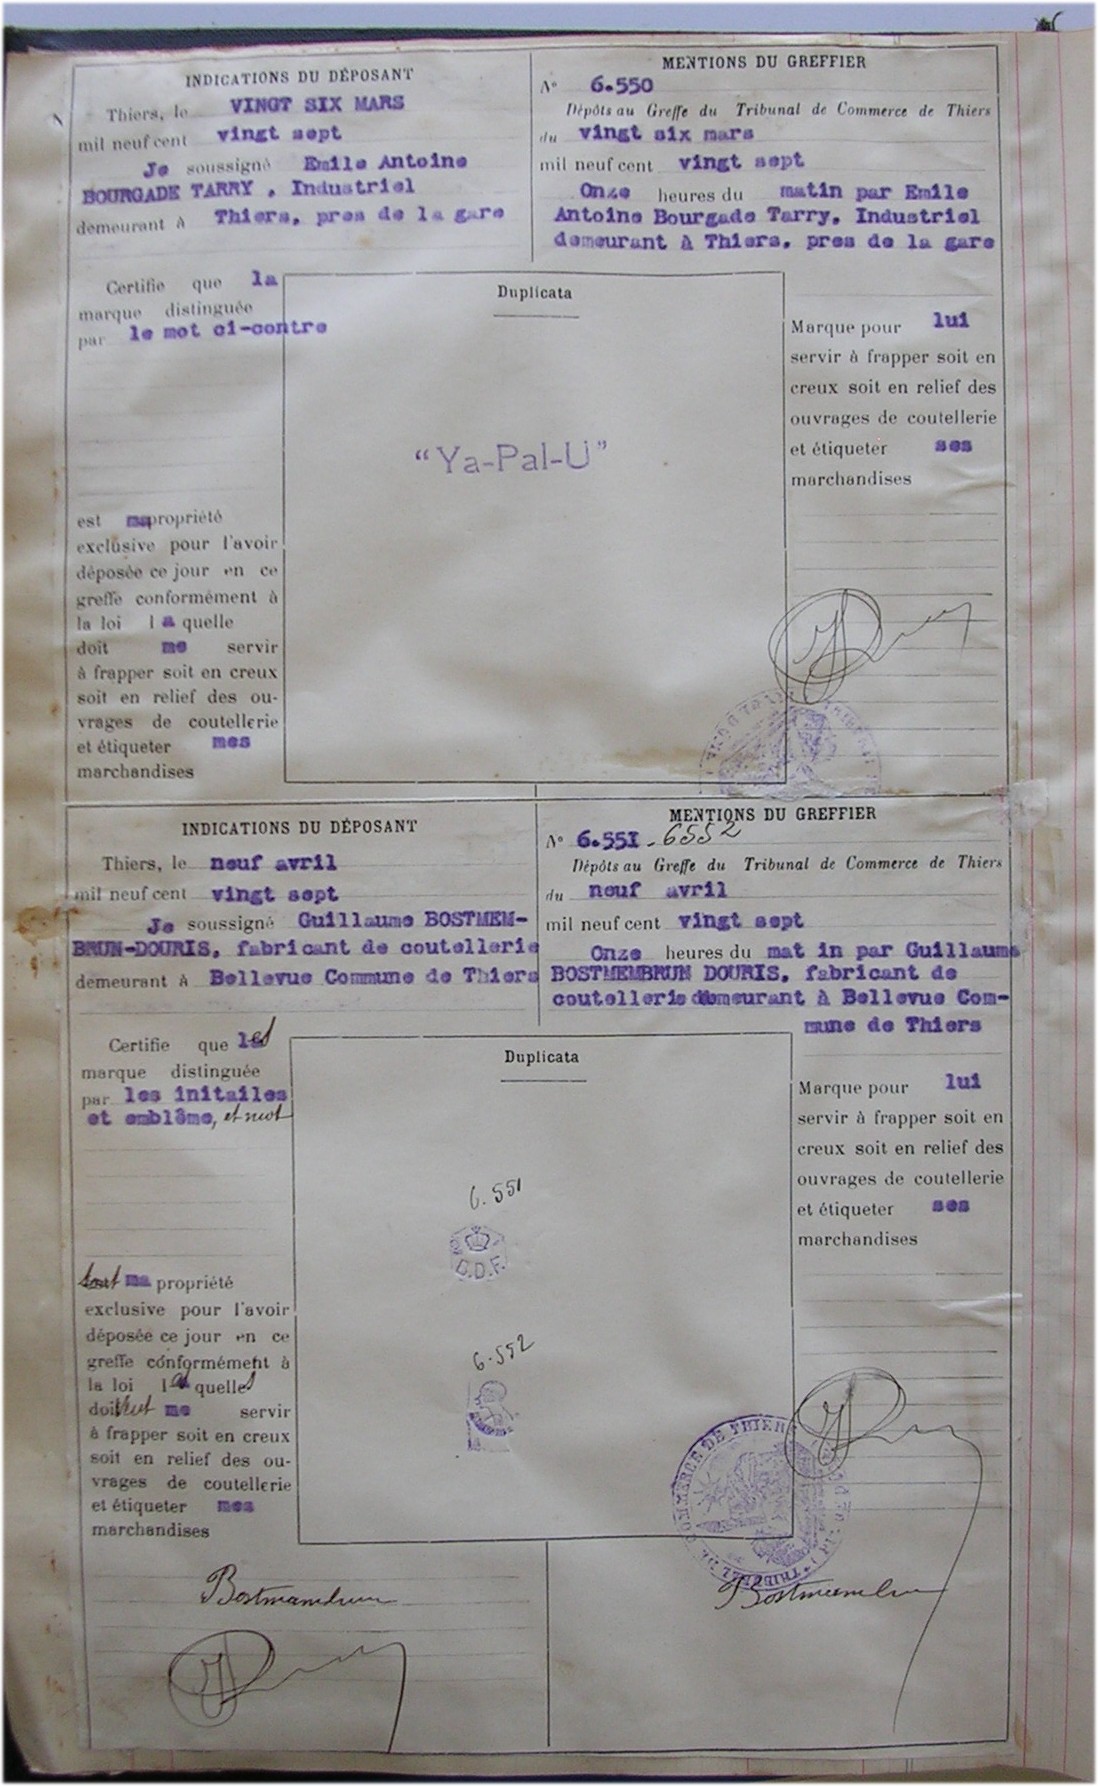 INDICATIONS DU DÉPOSANT
Thiers, le VINGT SIX MARS
mil neuf cent vingt sept
Je soussigné Emile Antoine
BOURGADE TARRY , Industriel
demeurant à Thiers, pres de la gare
MENTIONS DU GREFFIER
N° 6.550
Dépôts au Greffe du Tribunal de Commerce de Thiers
du vingt six mars
mil neuf cent vingt sept
Onze heures du matin par Emile
Antoine Bourgade Tarry, Industriel
demeurant à Thiers, pres de la gare
Certifie que la
marque distinguée
par le mot ci-contre
est ma propriété
exclusive pour l'avoir
déposée ce jour en ce
greffe conformément à
la loi la quelle
doit me servir
à frapper soit en creux
soit en relief des ou-
vrages de coutellerie
et étiqueter mes
marchandises
Duplicata
“Ya-Pal-U”
Marque pour lui
servir à frapper soit en
creux soit en relief des
ouvrages de coutellerie
et étiqueter ses
marchandises
INDICATIONS DU DÉPOSANT
Thiers, le neuf avril
mil neuf cent vingt sept
Je soussigné Guillaume BOSTMEM-
BRUN-DOURIS, fabricant de coutellerie
demeurant à Bellevue Commune de Thiers
MENTIONS DU GREFFIER
N° 6.551 - 6552
Dépôts au Greffe du Tribunal de Commerce de Thiers
du neuf avril
mil neuf cent vingt sept
Onze heures du mat in par Guillaume
BOSTMEMBRUN DOURIS, fabricant de
coutellerie demeurant à Bellevue Com-
mune de Thiers
Certifie que les
marque distinguée
par les initailes
et emblême, et mot
sont ma propriété
exclusive pour l'avoir
déposée ce jour en ce
greffe conformément à
la loi les quelles
doivent me servir
à frapper soit en creux
soit en relief des ou-
vrages de coutellerie
et étiqueter mes
marchandises
Duplicata
6.551
6.552
Marque pour lui
servir à frapper soit en
creux soit en relief des
ouvrages de coutellerie
et étiqueter ses
marchandises
COMMERCE DE THIERS
Bostmambrun
Bostmambrun